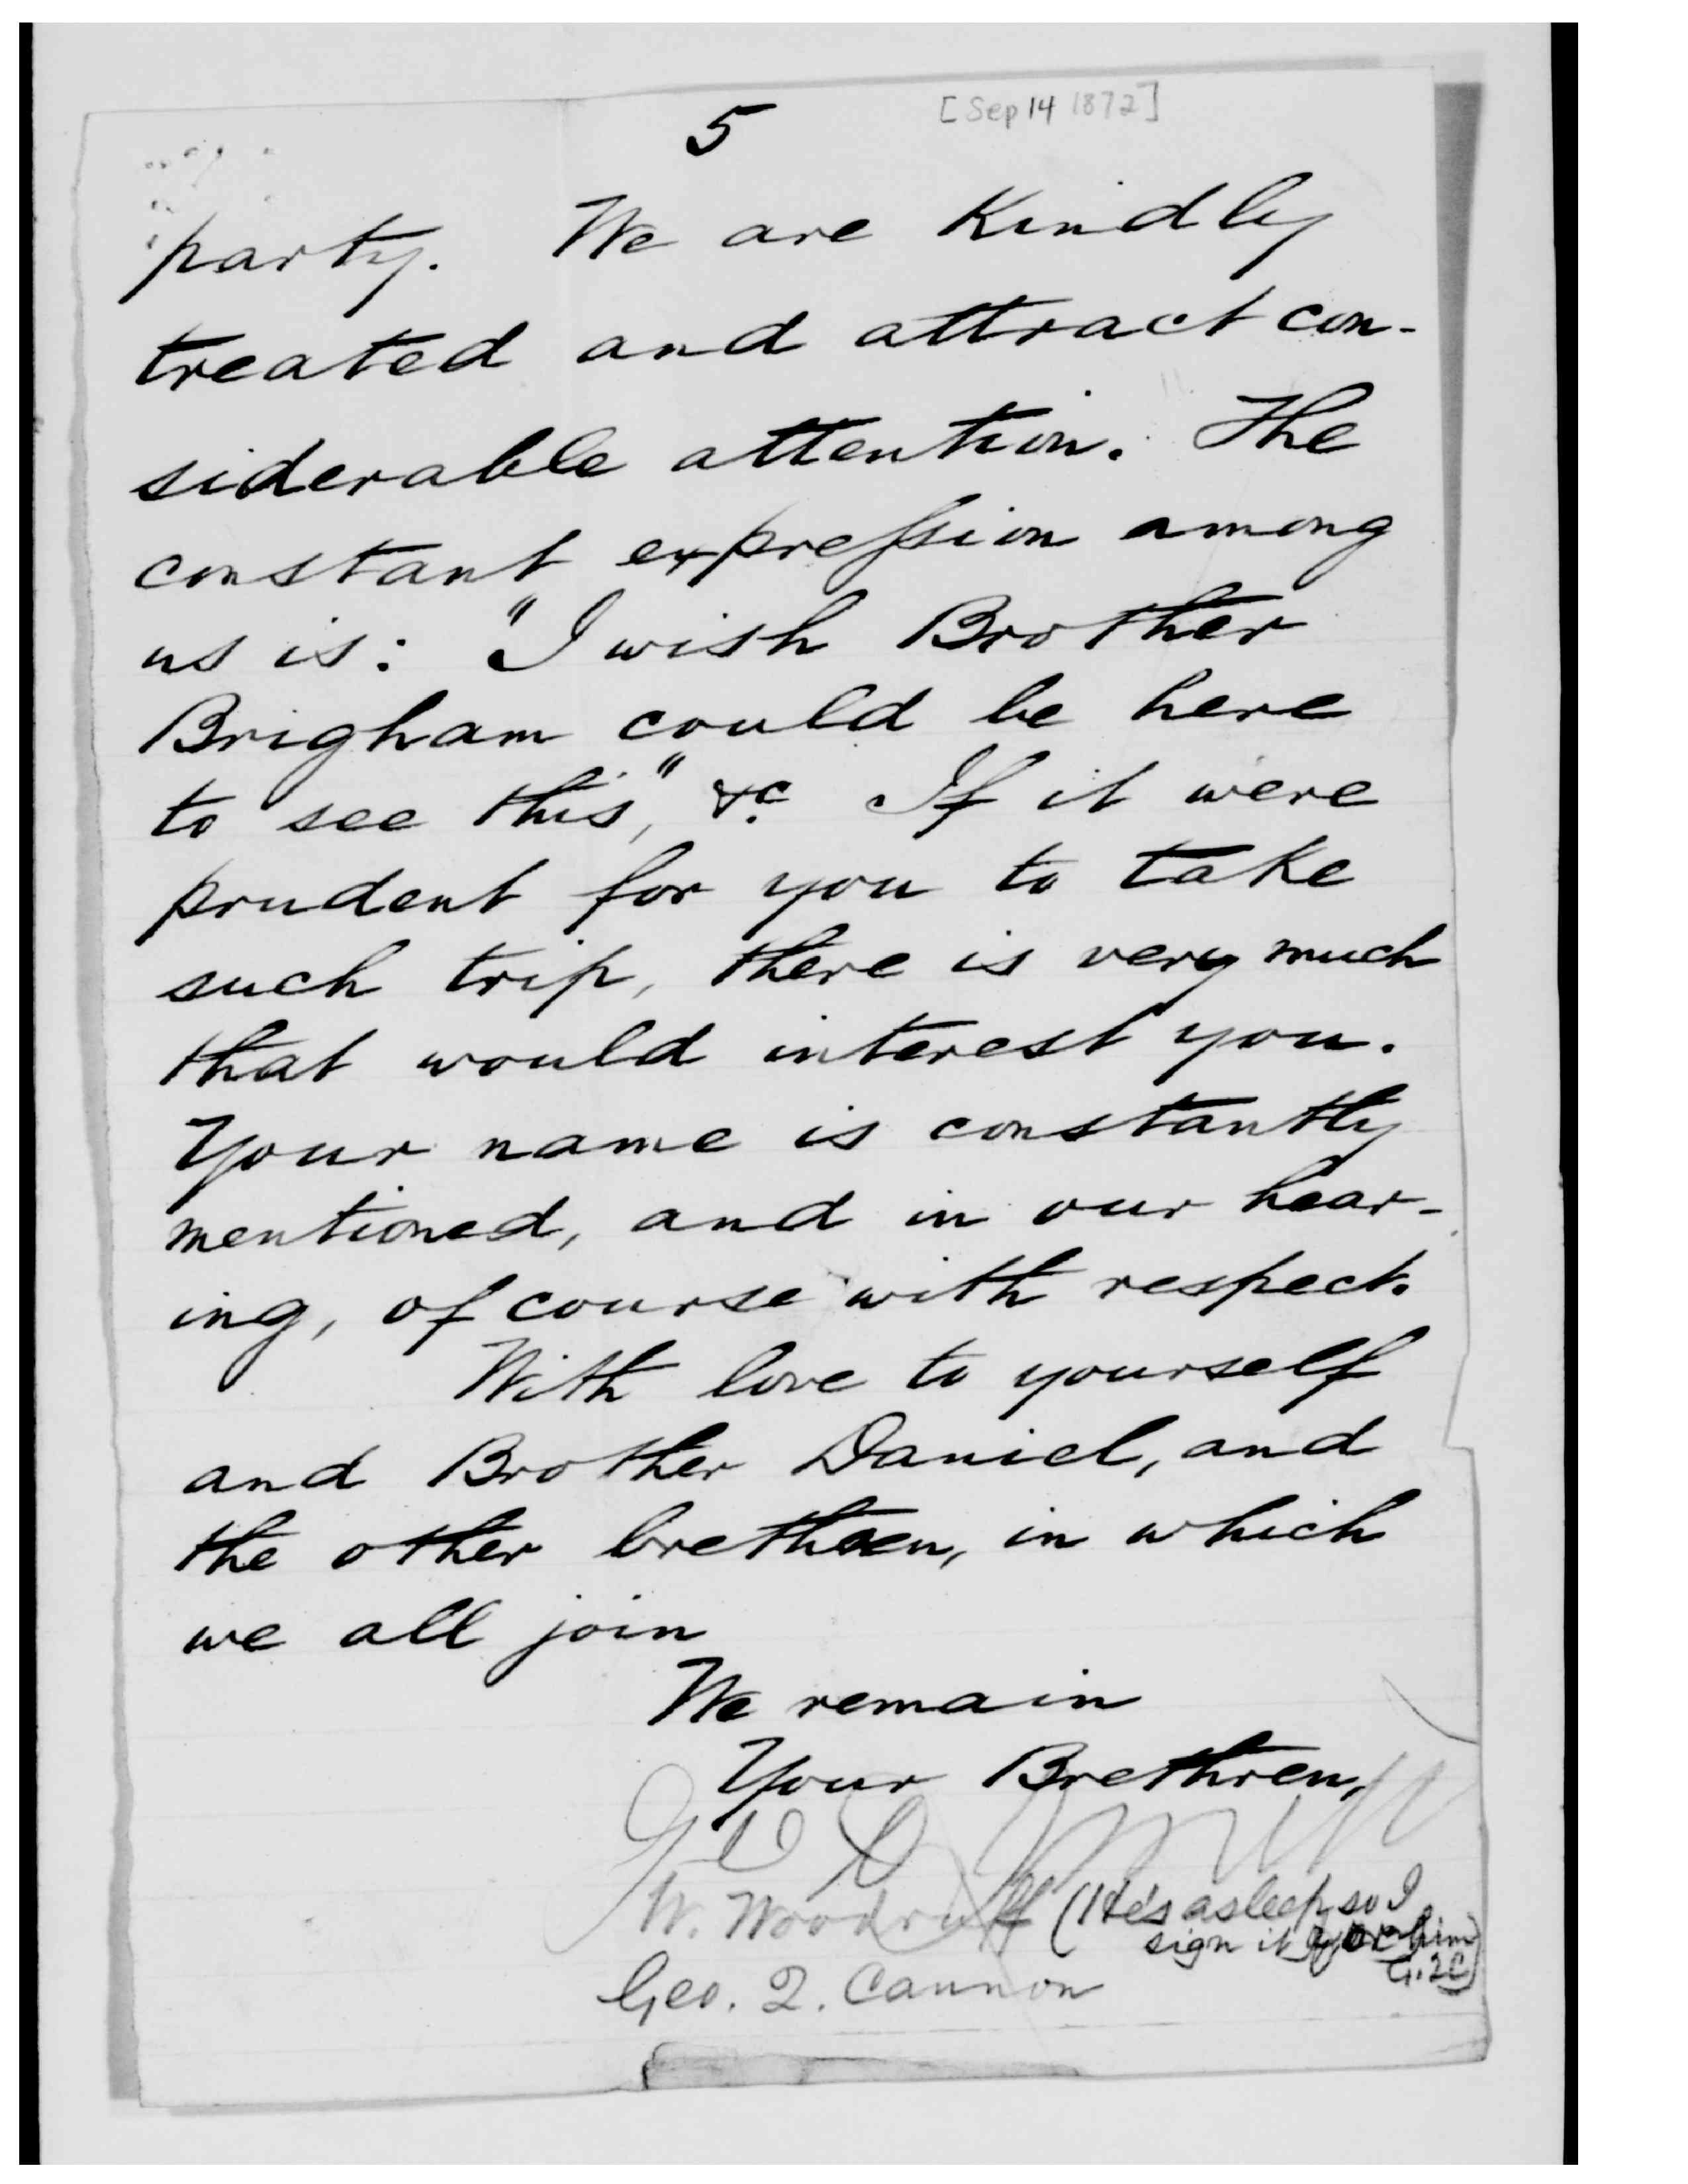 5 [Sep 14 1872]
party. We are Kindly
treated and attract con-
siderable attention. The
constant expression among
us is: "I wish Brother
Brigham could be here
to see this," &c. If it were
prudent for you to take
such trip, there is very much
that would interest you.
Your name is constantly
mentioned, and in our hear-
ing, of course with respect.
With love to yourself
and Brother Daniel, and
the other brethren, in which
we all join
We remain
Your Brethren,
W. Woodruff (He's asleep, so I
sign it for him
G.2C)
Geo. Q. Cannon